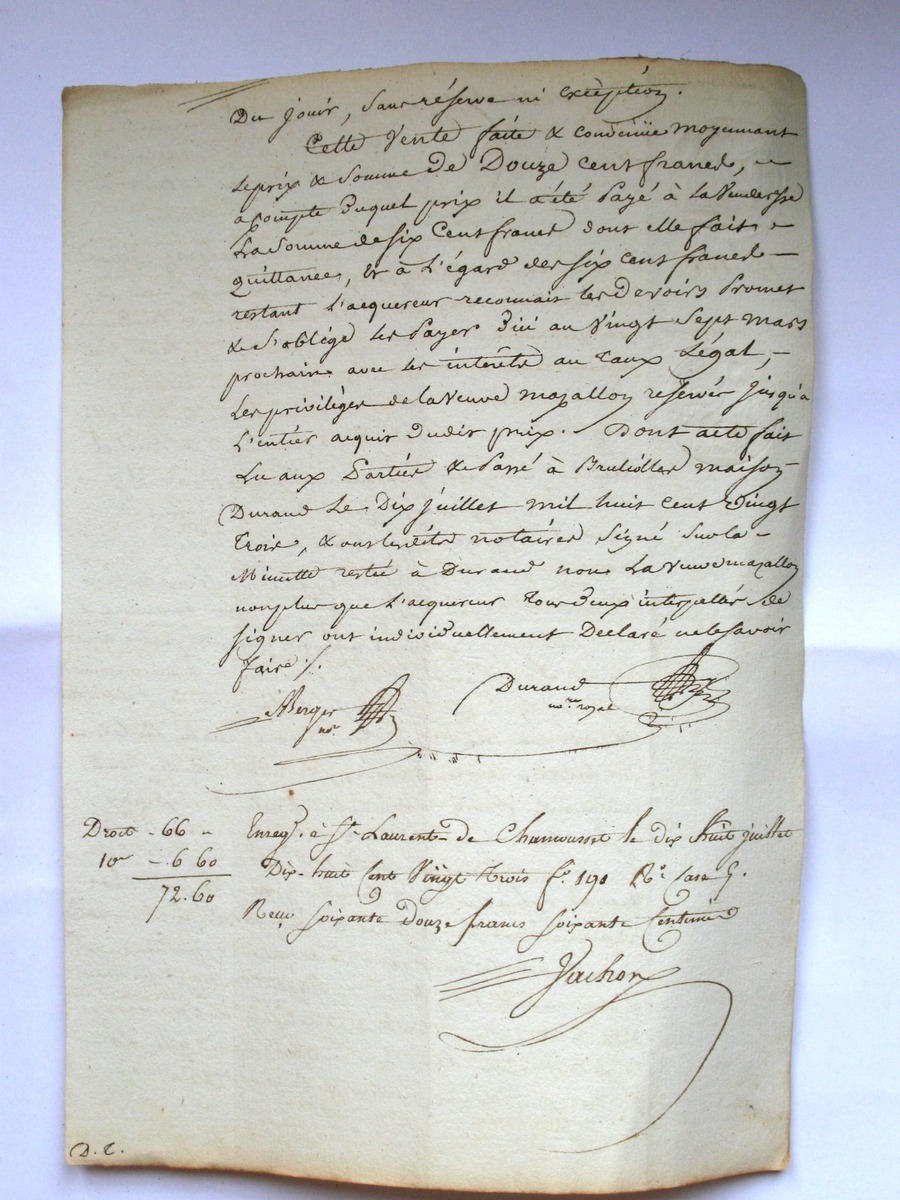 Du jouir, sans réserve ni exception.
Cette Vente faite & convenüe moyennant
le prix & somme de Douze cent francs, –
a compte duquel prix il a été Payé à la Venderesse
La Somme de six Cent francs dont elle fait –
quittance, Et à l'égard des six cent francs –
restant l'acquereur reconnait les devoirs Promet
& s'oblége les Payer d'ici au Vingt Sept mars
prochain avec les intérêts au Taux Légal, –
Les priviléges de la Veuve mazallon reservés jusqu'a
L'entier acquit dudit prix. Dont acte fait
Lu aux Parties & Passé à Brulliolles maison
Durand Le Dix juillet mil huit cent Vingt
Trois, & ont lesdits notaires Signé Sur la –
Minutte restée à Durand non La Veuve mazallon
non plus que L'acquereur Tous deux interpellés de
signer ont individuellement Déclaré ne le Savoir
faire /.
Berger Durand
nore nore royal
Droit - 66 - Enregé à St Laurent de Chamousset le dix huit juillet
10e - 6 60 Dix-huit Cent Vingt trois fo 191 Ro Case 5.
72.60 Reçu Soixante Douze francs soixante Centimes
Vachon
D. C.